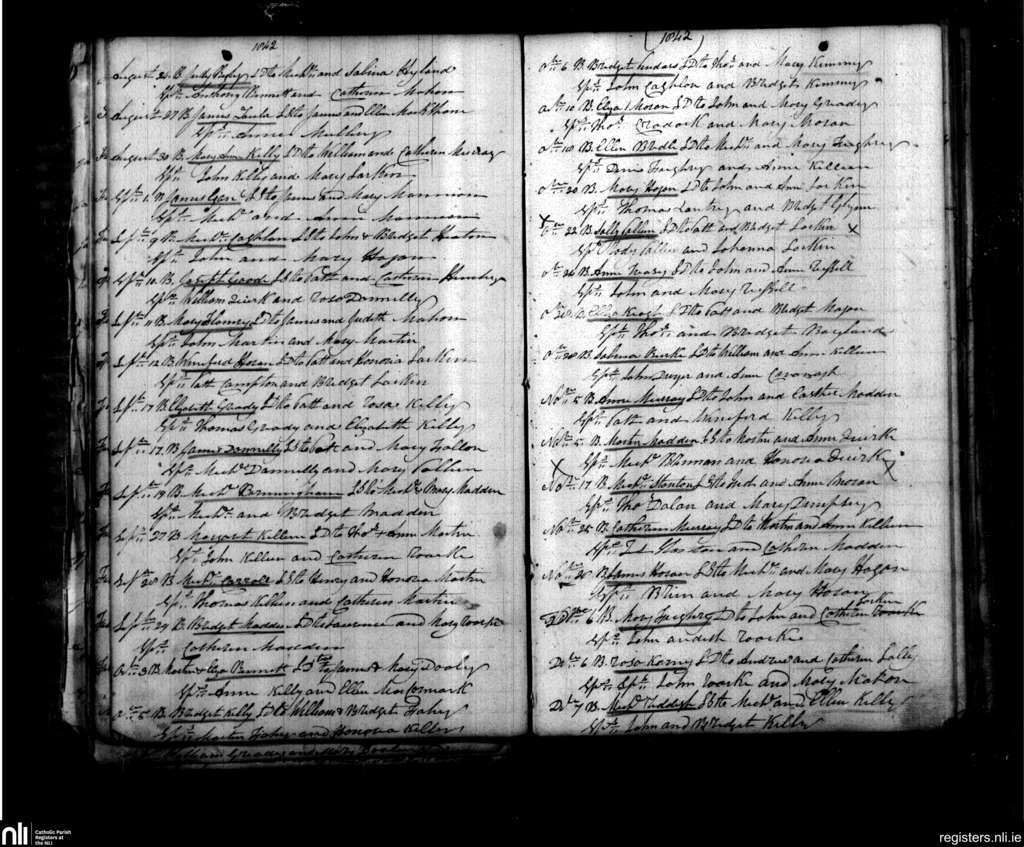 1842
August 24 B. Judy Rigby LD to Mich. and Sabina Hyland
Spts. Anthony Bennett and Catherine Mahon
August 27 B. James LS to James and Ellen
Spts. Annie Mulhey
August 30 B. Mary Anne Kelly LD to William and Catherine Murray
Spts. John Kelly and Mary Larkin
Spt. 1 B James Egan LS to James and Mary Mannion
Spts. Mich. and Anne Mannion
Spt. 9 B. Mich. Coghlan LS to John & Bridget Heaton
Spts. John and Mary Hogan
Spt. 10 B. Joseph Good LS to Patt and Catherine
Spts. William Quirk and Rose Donnelly
Spt. 11 B. Mary LD to James and Judith Mahon
Spts. John Martin and Mary Martin
Spt. 12 B. Winefred Horan LD to Patt and Honoria Larkin
Spts. Patt Campton and Bridget Larkin
Spt. 17 B. Elizabeth Grady LD to Patt and Rose Kelly
Spts. Thomas Grady and Elizabeth Kelly
Spt. 17 B. James Donnelly LS to Patt and Mary Fallon
Spts. Mich. Donnelly and Mary Cullen
Spt. 18 B. Mich. Bermingham LS to Mich. & Mary Madden
Spts. Mich. and Bridget Madden
Spt. 27 B. Margaret Killeen LD to Thos. & Ann Martin
Spts. John Killeen and Catherine Roarke
Spt. 28 B. Mich. Carroll LS to Henry and Honoria Martin
Spts. Thomas Killeen and Catherine Martin
Spt. 29 B. Bridget Madden LD to Laurence and Mary Roarke
Spts. Catherine Madden
Oct. 3 B. Martin & Eliza Bennett to James & Mary Dooly
Spts. Anne Kelly and Ellen MacCormack
Oct. 5 B. Bridget Kelly LD to William & Bridget Fahey
Spts. Martin Fahey and Honoria Kelly
William Grady and Mary
(1842)
Oct. 6 B. Bridget LD to Thos. and Mary Kemmy
Spts. John Coghlan and Bridget Kemmy
Oct. 10 B. Eliza Moran LD to John and Mary Grady
Spts. Thos. Cradock and Mary Moran
Oct. 18 B. Ellen LD to Mich. and Mary Fueghry
Spts. Denis Fueghry and Anne Killeen
Oct. 20 B. Mary Hogan LD to John and Anne Larkin
Spts. Thomas and Bridget Glynn
X Oct. 22 B. Sally Cullen LD to Patt and Bridget Larkin X
Spts. Cullen and Johanna Larkin
Oct. 26 B. Anne LD to John and Anne Russell
Spts. John and Mary Russell
Oct. 28 B. Ellen Keogh LD to Patt and Bridget Hogan
Spts. Thos. and Bridget Boyland
Oct. 28 B. Sabina Burke LD to William and Ann Killeen
Spts. John Dwyer and Ann Cavanagh
Nov. 5 B. Anne Murray LD to John and Cather. Madden
Spts. Patt and Winefred Kelly
Nov. 5 B. Martin Madden LS to Martin and Anne Quirke
X Spts. Mich. Brennan and Honoria Quirk X
Nov. 17 B. Mich. Stanton LS to and Anne Moran
Spts. Thos. Dolan and Mary Dempsey
Nov. 25 B. Catherine Murray LD to Martin and Ann Killeen
Spts. and Catherine Madden
Nov. 26 B. James Horan LS to Mich. and Mary Hogan
Spts. and Mary Horan
Larkin
Dec. 6 B. Mary Fueghry LD to John and Catherine Roarke
Spts. John and Roarke
Dec. 6 B. Rose LD to Andrew and Catherine Lally
Spts. John Roarke and Mary Mahon
Dec. 7 B. Mich. LS to Mich. and Ellen Kelly
Spts. John and Bridget Kelly
nli Catholic Parish
Registers at
the NLI
registers.nli.ie